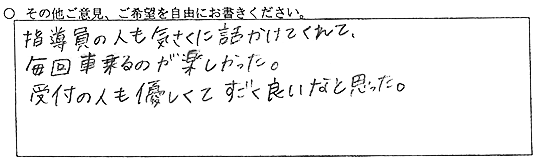 ○ その他ご意見、ご希望を自由にお書きください。
指導員の人も気さくに話かけてくれて、
毎回車乗るのが楽しかった。
受付の人も優しくてすごく良いなと思った。